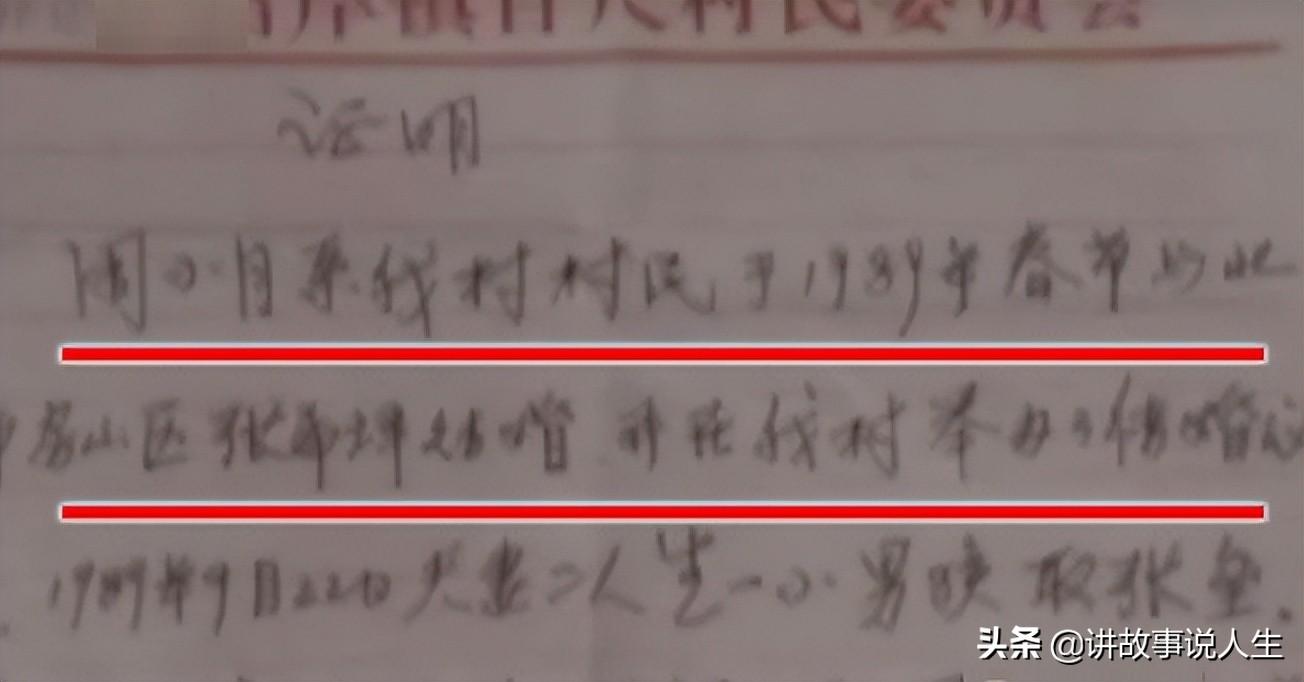 村民委员会
证明
周小月系我村村民于1989年春节与北
房山区张希坪结婚并在我村举办了结婚
1989年9月22日夫妻二人生一小男孩取张
头条 @讲故事说人生